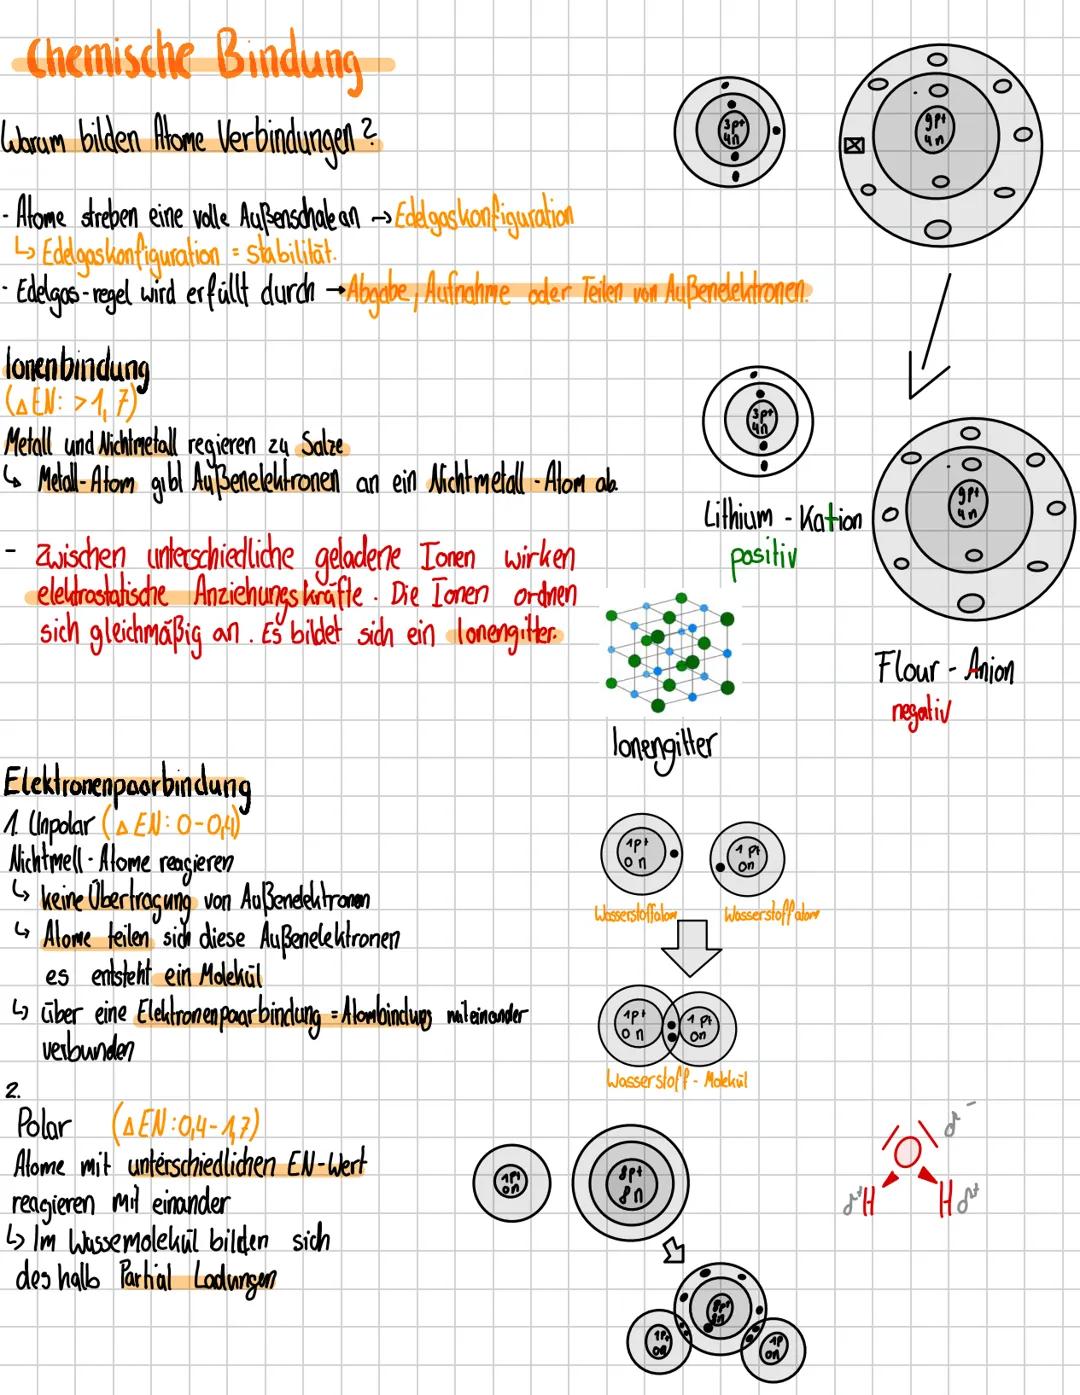 Chemische Bindung
Warum bilden Atome Verbindungen?
- Atome streben eine volle Außenschale an → Edelgaskonfiguration
↳ Edelgaskonfiguration = Stabilität.
- Edelgas-regel wird erfüllt durch → Abgabe, Aufnahme oder Teilen von Außenelektronen.
3p+
4n
9p+
4n
Ionenbindung
(ΔEN: >1,7)
Metall und Nichtmetall regieren zu Salze
↳ Metall-Atom gibt Außenelektronen an ein Nichtmetall-Atom ab
- Zwischen unterschiedliche geladene Ionen wirken
elektrostatische Anziehungskräfte. Die Ionen ordnen
sich gleichmäßig an. Es bildet sich ein Ionengitter.
3p+
4n
Lithium - Kation
positiv
9p+
4n
Flour - Anion
negativ
Ionengitter
Elektronenpaarbindung
1. Unpolar (ΔEN: 0-0,4)
Nichtmell-Atome reagieren
↳ keine Übertragung von Außenelektronen
↳ Atome teilen sich diese Außenelektronen
es entsteht ein Molekül
↳ über eine Elektronenpaarbindung = Atombindung miteinander
verbunden
1p+
0n
1p+
0n
Wasserstoffatom
Wasserstoffatom
1p+
0n
1p+
0n
Wasserstoff - Molekül
2.
Polar (ΔEN: 0,4-1,7)
Atome mit unterschiedlichen EN-Wert
reagieren mit einander
↳ Im Wassemolekül bilden sich
deshalb Partial Ladungen
1p+
0n
8p+
8n
8p+
8n
1p+
0n
1p
0n
O
δ-
δ+ H
H δ+